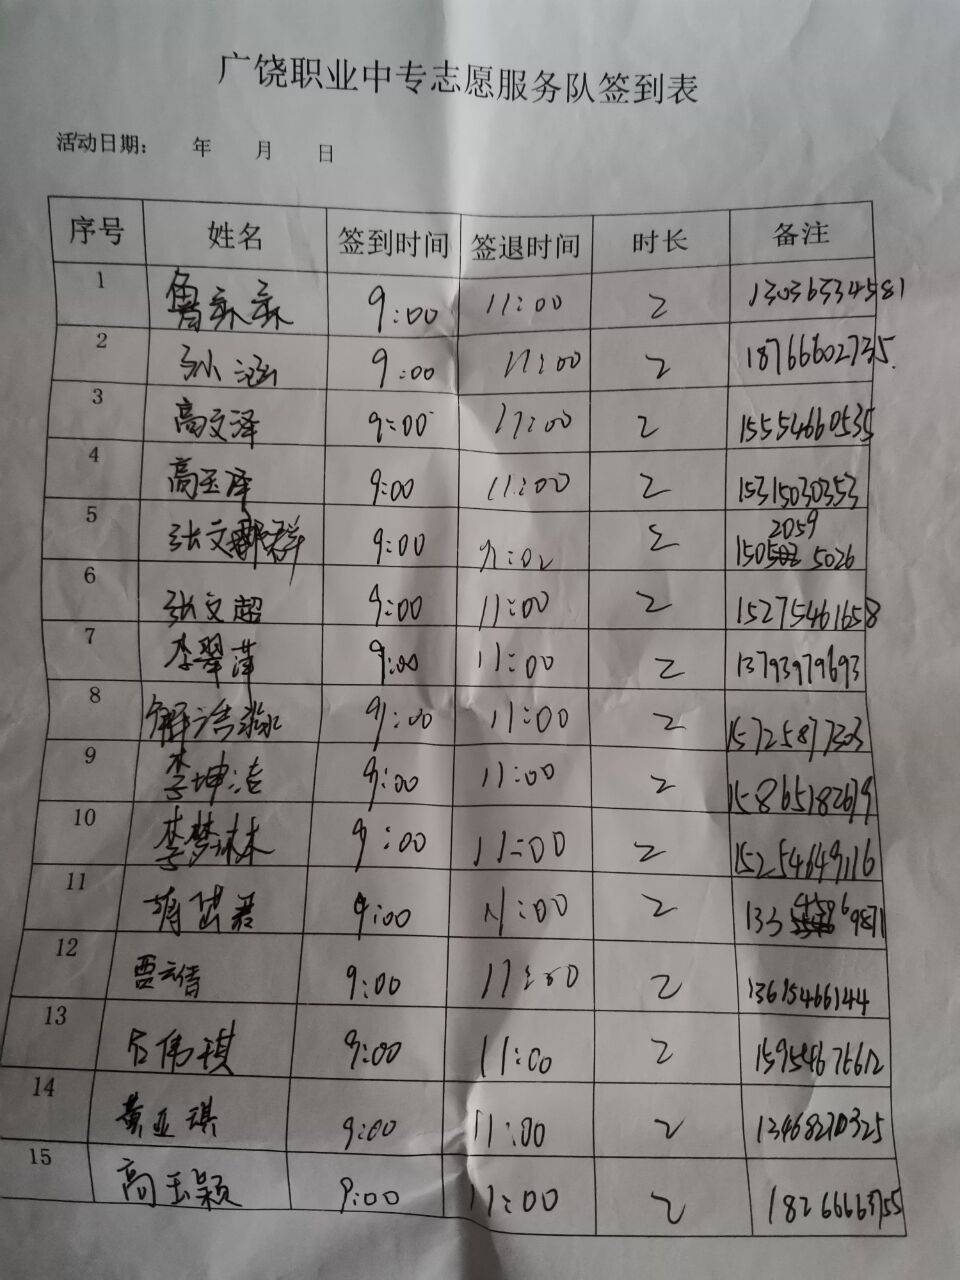 广饶职业中专志愿服务队签到表
活动日期： 年 月 日
序号 姓名 签到时间 签退时间 时长 备注
1 9:00 11:00 2 13036534581
2 孙涵 9:00 11:00 2 18766602735
3 高文泽 9:00 11:00 2 15554660535
4 高玉泽 9:00 11:00 2 15315030353
5 张文群 9:00 2 2059
150 5026
6 张文超 9:00 11:00 2 15275461658
7 李翠萍 9:00 11:00 2 13793979693
8 解浩淼 9:00 11:00 2 15725877303
9 李坤洁 9:00 11:00 2 15865182619
10 李梦琳 9:00 11:00 2 15254649116
11 9:00 11:00 2
12 贾云倩 9:00 11:00 2 13615466144
13 石伟琪 9:00 11:00 2 15954676612
14 黄亚琪 9:00 11:00 2 13468210325
15 高玉颖 9:00 11:00 2